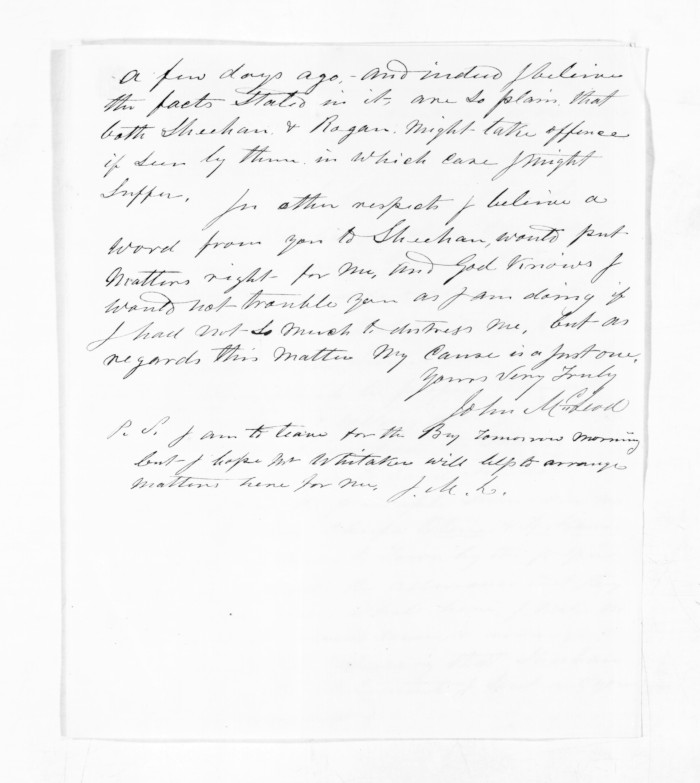 a few days ago, - and indeed I believe
the facts stated in it are so plain that
both Sheehan & Rogan might take offence
if seen by them in which case I might
suffer.
In other respects I believe a
word from you to Sheehan, would put
matters right for me, and God knows I
would not trouble you as I am doing if
I had not so much to distress me, but as
regards this matter my cause is a just one.
Yours Very Truly
John McLeod
P. S. I am to leave for the Bay tomorrow morning
but I hope Mr Whitaker will help to arrange
matters here for me. J. M. L.